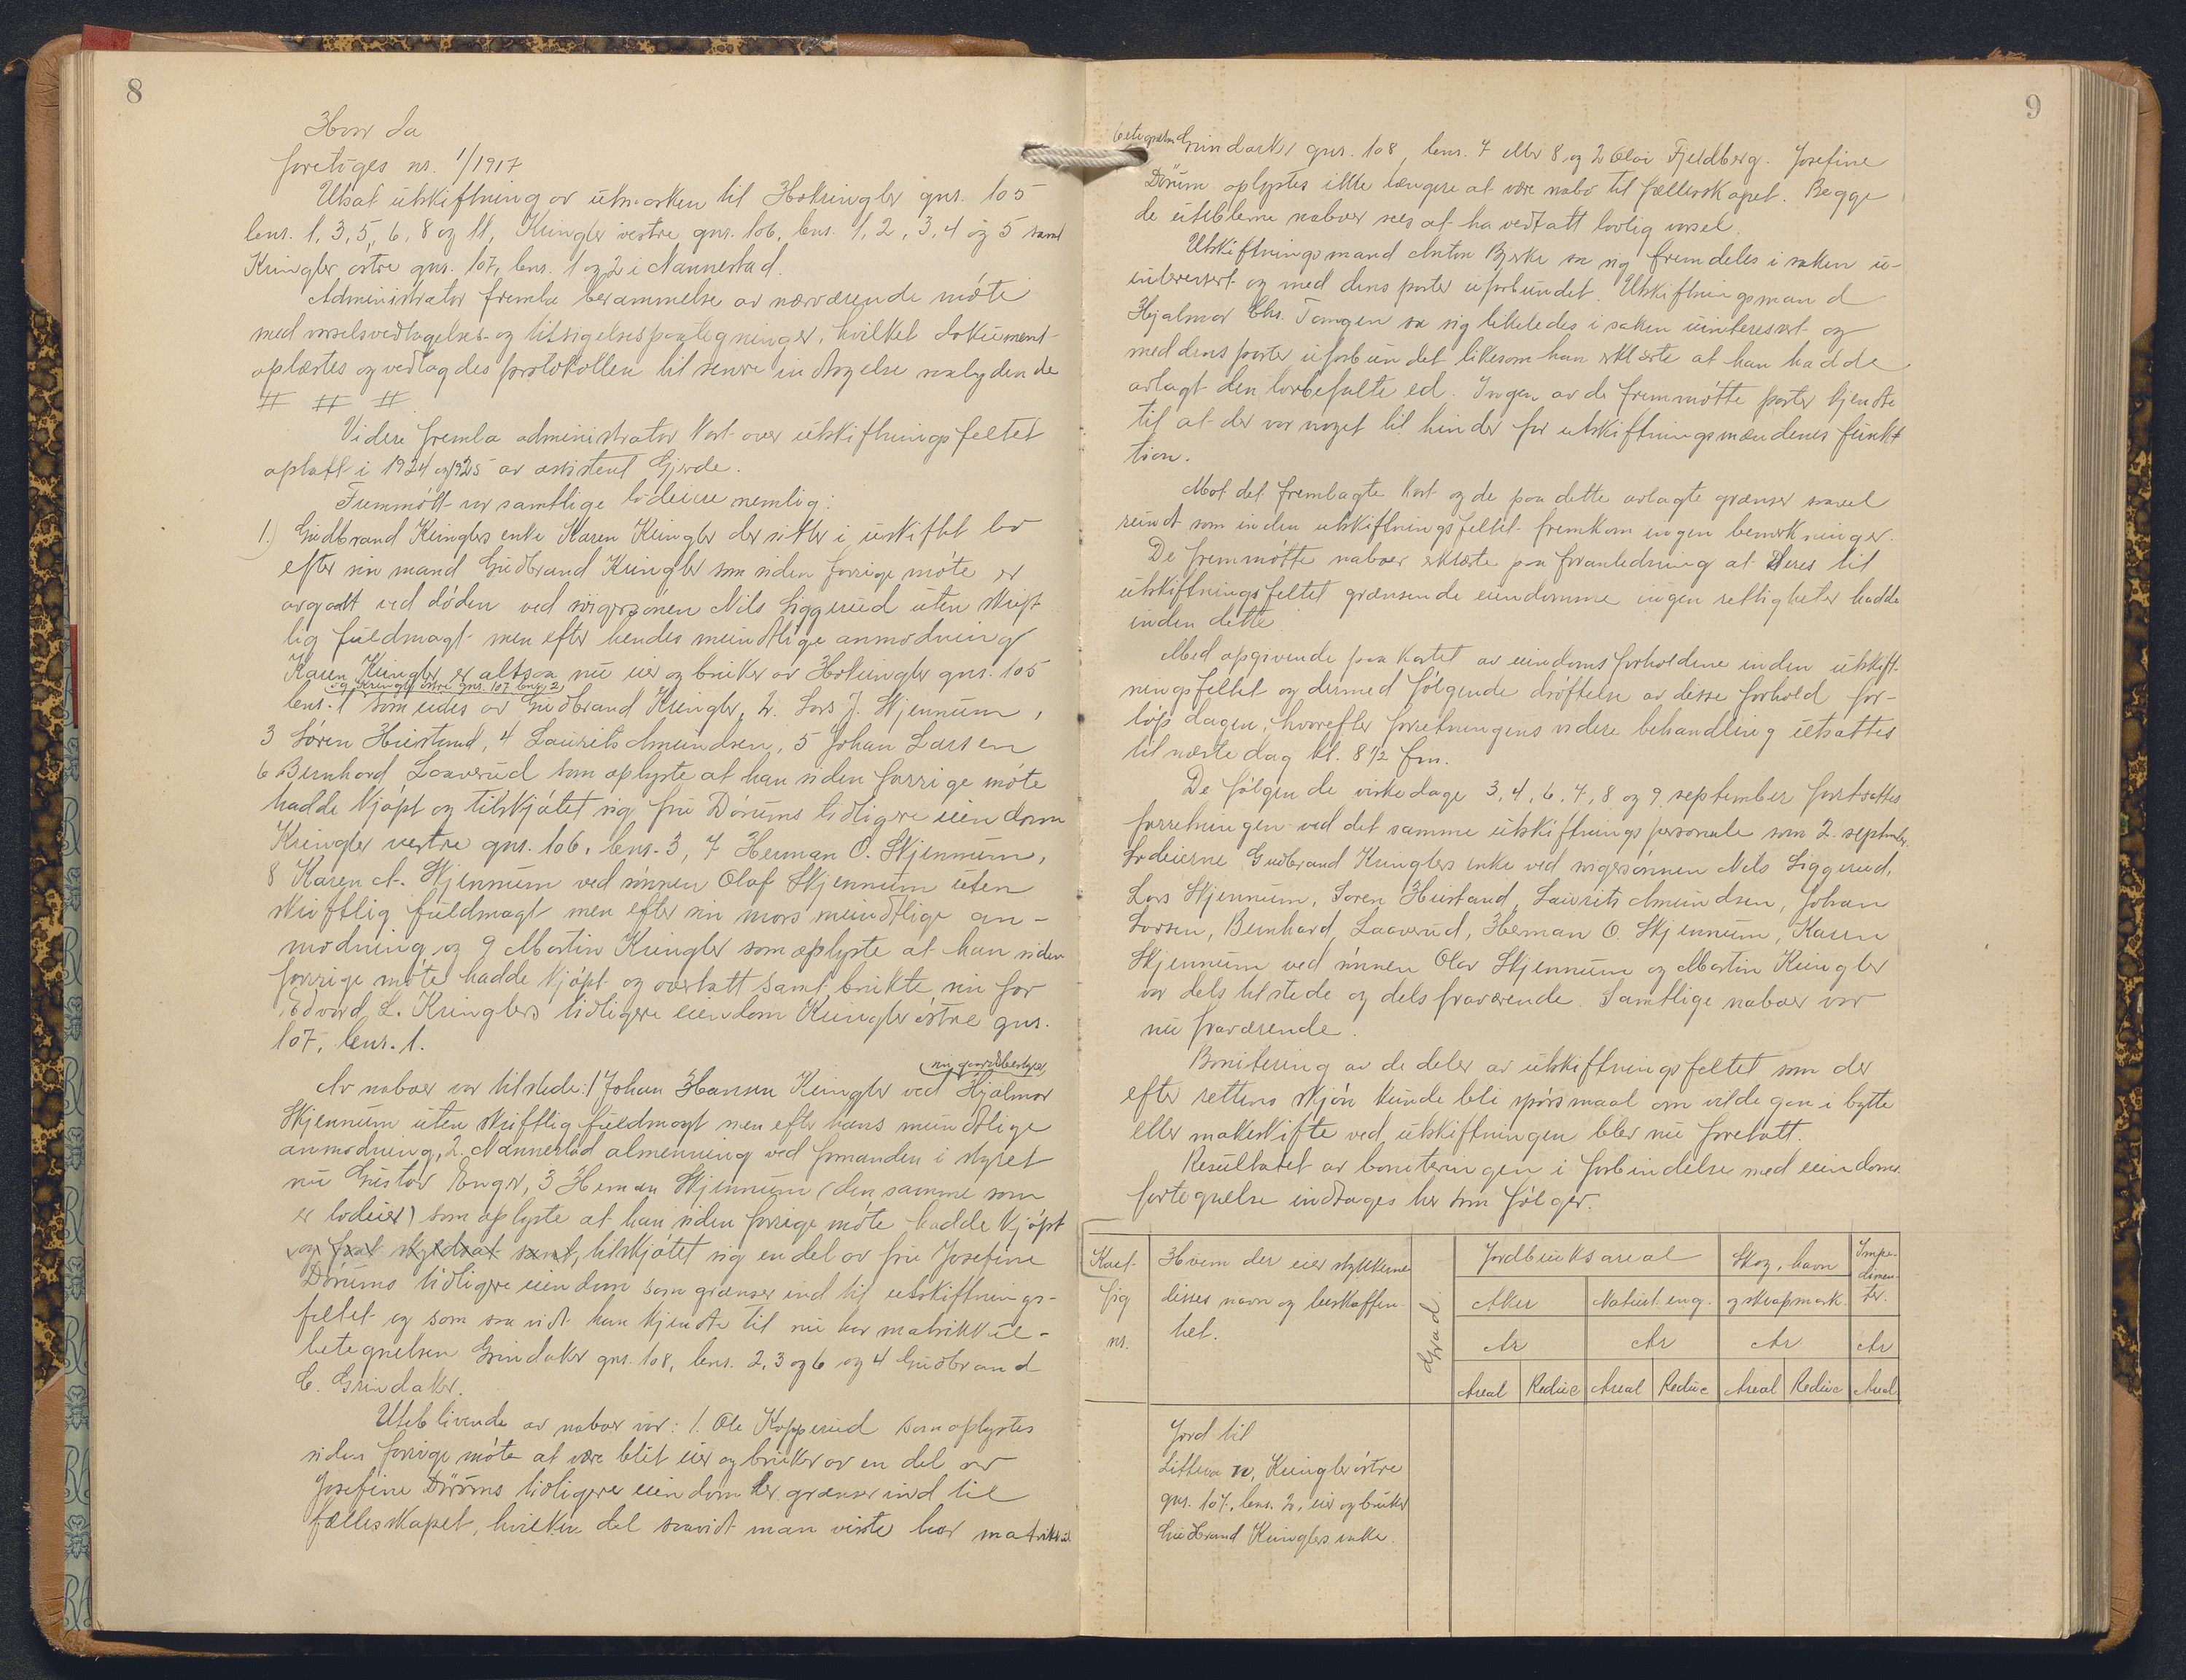 8
Hvor da
foretages nr. 1/1917
Utsat utskiftning av utmarken til Hokringler gnr. 105
bnr. 1, 3, 5, 6, 8 og 11, Kringler vestre gnr. 106, bnr. 1, 2, 3, 4 og 5 samt
Kringler østre gnr. 107, bnr. 1 og 2 i Nannestad.
Administrator fremla berammelse av nærværende møte
med varselsvedtagelses- og tilsigelsespaategninger, hvilket dokument
oplæstes og vedlagdes protokollen til senere indtagelse saalydende
# # #
Videre fremla administrator kart over utskiftningsfeltet
optatt i 1924 og 1925 av assistent Gjerde.
Fremmøtt var samtlige lodeiere nemlig:
1.) Gudbrand Kringlers enke Karen Kringler der sitter i uskiftet bo
efter sin mand Gudbrand Kringler som siden forrige møte er
avgaatt ved døden ved svigersønen Nils Liggerud uten skrift
lig fuldmagt men efter hendes mundtlige anmodning
Karen Kringler er altsaa nu eier og bruker av Hokringler gnr. 105
og Kringler østre gnr. 107 bnr. 2
bnr. 1 som eides av Gudbrand Kringler, 2. Lars J. Skjennum,
3 Søren Huistund, 4 Laurits Amundsen, 5 Johan Larsen
6 Bernhard Laaverud som oplyste at han siden forrige møte
hadde kjøpt og tilskjøtet sig fru Dørums tidligere eiendom
Kringler vestre gnr. 106, bnr. 3, 7 Herman O. Skjennum,
8 Karen A. Skjennum ved sønnen Olaf Skjennum uten
skriftlig fuldmagt men efter sin mors mundtlige an-
modning og 9 Martin Kringler som oplyste at han siden
forrige møte hadde kjøpt og overtatt samt brukte nu for
Edvard L. Kringlers tidligere eiendom Kringler østre gnr.
107, bnr. 1.
nu gaardbestyrer
Av naboer var tilstede: 1 Johan Hansen Kringler ved Hjalmar
Skjennum uten skriftlig fuldmagt men efter hans mundtlige
anmodning, 2. Nannestad almenning ved formanden i styret
nu Gustav Enger, 3 Herman Skjennum (den samme som
er lodeier) som oplyste at han siden forrige møte hadde kjøpt
og faat skyldsat samt, tilskjøtet sig en del av fru Josefine
Dørums tidligere eiendom som grænser ind til utskiftnings-
feltet og som saa vidt han kjendte til nu har matrikkul-
betegnelsen Grindaker gnr. 108, bnr. 2, 3 og 6 og 4 Gudbrand
C. Grindaker.
Uteblivende av naboer var: 1. Ole Kopperud som oplystes
siden forrige møte at være blit eier og bruker av en del av
Josefine Dørums tidligere eiendom der grænser ind til
fællesskapet, hvilken del saavidt man visste har matrikkul
9
betegnelsen Grindaker gnr. 108, bnr. 7 eller 8 og 2 Olai Fjeldberg. Josefine
Dørum oplystes ikke længere at være nabo til fællesskapet. Begge
de uteblevne naboer sees at ha vedtatt lovlig varsel.
Utskiftningsmand Anton Bjerke sa sig fremdeles i saken u-
interessert og med dens parter uforbundet. Utskiftningsmand
Hjalmar Chr. Tangen sa sig likeledes i saken uinteressert og
med dens parter uforbundet likesom han erklærte at han hadde
avlagt den lovbefalte ed. Ingen av de fremmøtte parter kjendte
til at der var noget til hinder for utskiftningsmændenes funk-
tion.
Mot det fremlagte kart og de paa dette avlagte grænser saavel
rundt som inden utskiftningsfeltet fremkom ingen bemerkninger.
De fremmøtte naboer erklærte paa foranledning at deres til
utskiftningsfeltet grænsende eiendomme ingen rettigheter hadde
inden dette
Med opgivende paa kartet av eiendomsforholdene inden utskift-
ningsfeltet og dermed følgende drøftelse av disse forhold for-
løp dagen, hvorefter forretningens videre behandling utsattes
til næste dag kl. 8 1/2 fm.
De følgende virkedage 3, 4, 6, 7, 8 og 9 september fortsattes
forretningen ved det samme utskiftningspersonale som 2. septmbr.
Lodeierne Gudbrand Kringlers enke ved svigersønnen Nils Liggerud,
Lars Skjennum, Søren Huistund, Laurits Amundsen, Johan
Larsen, Bernhard Laaverud, Herman O. Skjennum, Karen
Skjennum ved sønnen Olav Skjennum og Martin Kringler
var dels tilstede og dels fraværende. Samtlige naboer var
nu fraværende.
Bonitering av de deler av utskiftningsfeltet som der
efter rettens skjøn kunde bli spørsmaal om vilde gaa i bytte
eller makeskifte ved utskiftningen blev nu foretatt.
Resultatet av boniteringen i forbindelse med eiendoms
fortegnelse indtages her som følger.
Kart- fig nr.
Hvem der eier stykkerne disses navn og beskaffen- het.
Grad.
Jordbruksareal
Skog, havn og skrapmark.
Impe- dimen- ter.
Aker
Naturl. eng.
Ar Ar Ar Ar
Areal Reduc Areal Reduc Areal Reduc Areal
Jord til
Littera n, Kringler østre
gnr. 107, bnr. 2, eier og bruker
Gudbrand Kringlers enke.